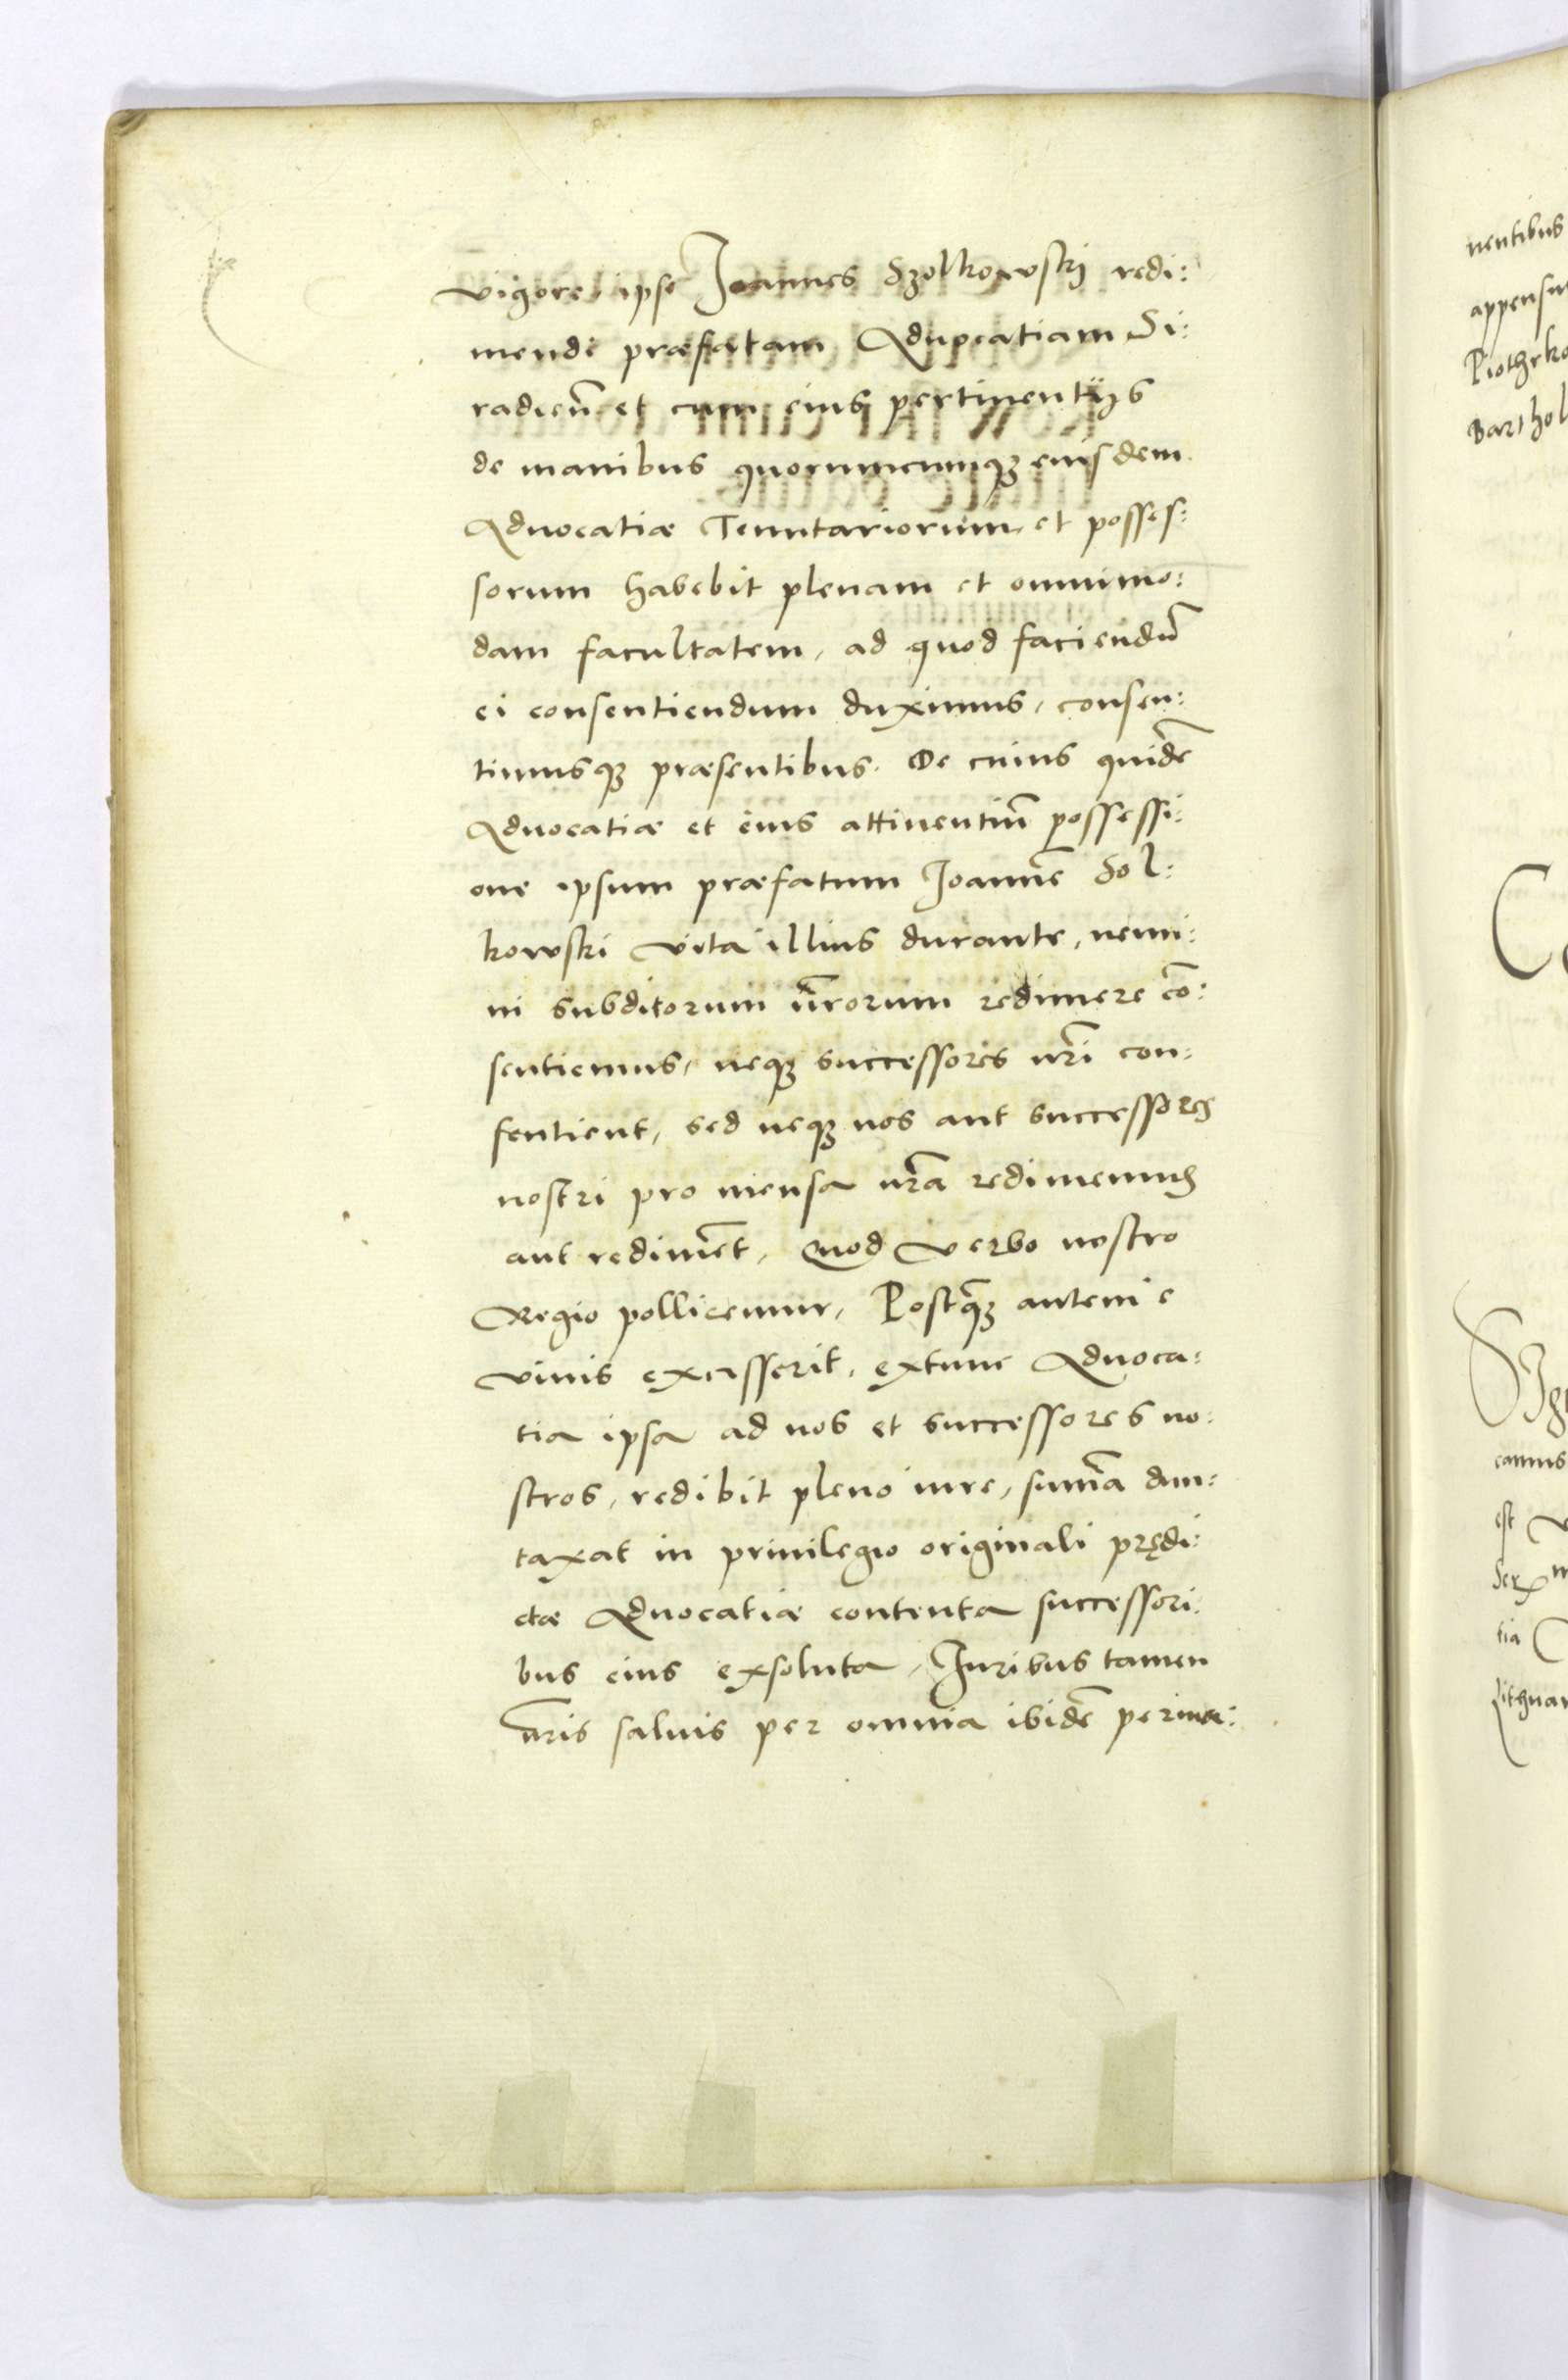 vigore ipse Joannes Szolkowskj redi:
mendi præfatam Aduocatiam Si:
radieñ et cum eius pertinentijs
de manibus quorumcumqȝ eiusdem
Aduocatiæ Tenutariorum et posses:
sorum habebit plenam et omnimo:
dam facultatem, ad quod faciendū
ei consentiendum duximus, consen:
timusqȝ præsentibus. De cuius quidē
Aduocatiæ et eius attinentiū possessi:
one ipsum præfatum Joannē Sol:
kowski vita illius durante, nemi:
ni subditorum nr̄orum redimere cō:
sentiemus, neqȝ successores nr̄i con:
sentient, sed neqȝ nos aut successores
nostri pro mensa nr̄a redimemus
aut redimēt, Quod verbo nostro
Regio pollicemur, Postqȝ autem e
viuis excesserit, extunc Aduoca:
tia ipsa ad nos et successores no:
stros, redibit pleno iure, summa dun:
taxat in priuilegio originali prędi:
ctæ Aduocatiæ contenta successori:
bus eius exsoluta, Juribus tamen
nr̄is saluis per omnia ibidē perma:
nentibus
Piothrko
Barthol
est
tia
Lithuan